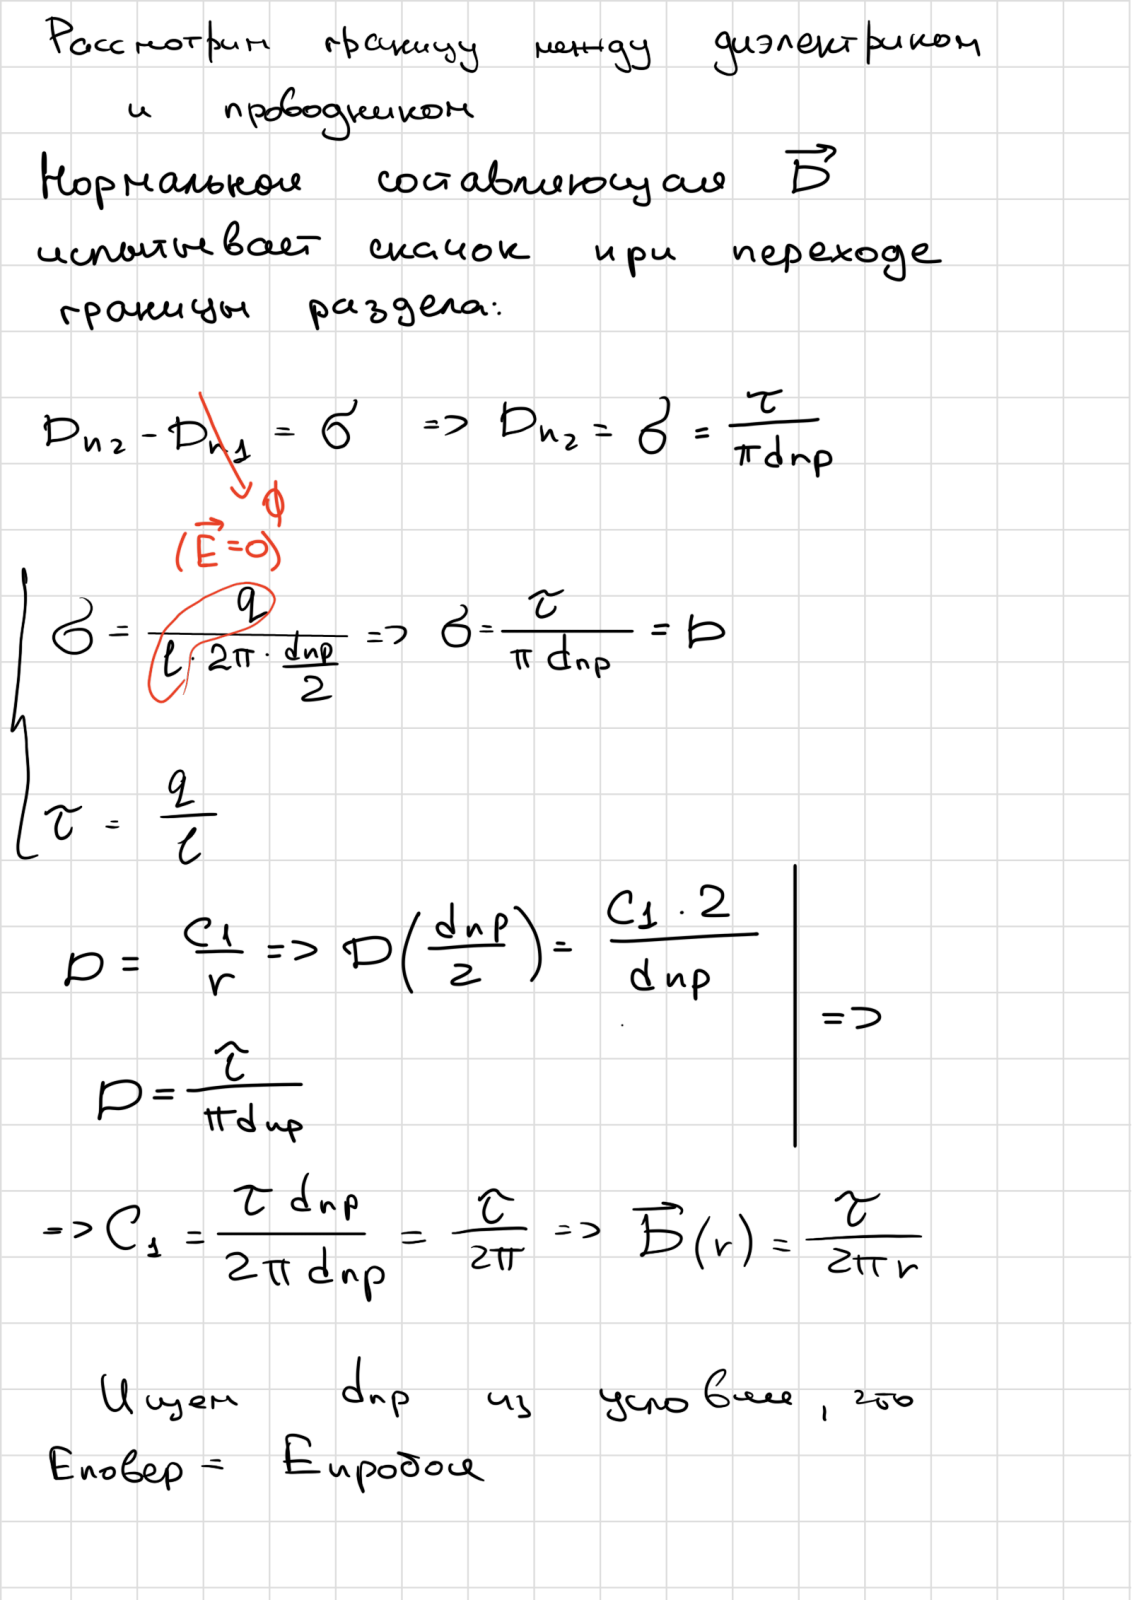 Рассмотрим границу между диэлектриком
и проводником
Нормальная составляющая D⃗
испытывает скачок при переходе
границы раздела:
Dn2 - Dn1 = σ => Dn2 = σ = τ / (π dпр)
0
(E⃗ = 0)
σ = q / (l · 2π · dпр/2) => σ = τ / (π dпр) = D
τ = q / l
D = C1 / r => D(dпр/2) = (C1 · 2) / dпр
=>
D = τ / (π dпр)
=> C1 = (τ dпр) / (2π dпр) = τ / 2π => D⃗(r) = τ / (2π r)
Ищем dпр из условия, что
Eповер = Eпробоя